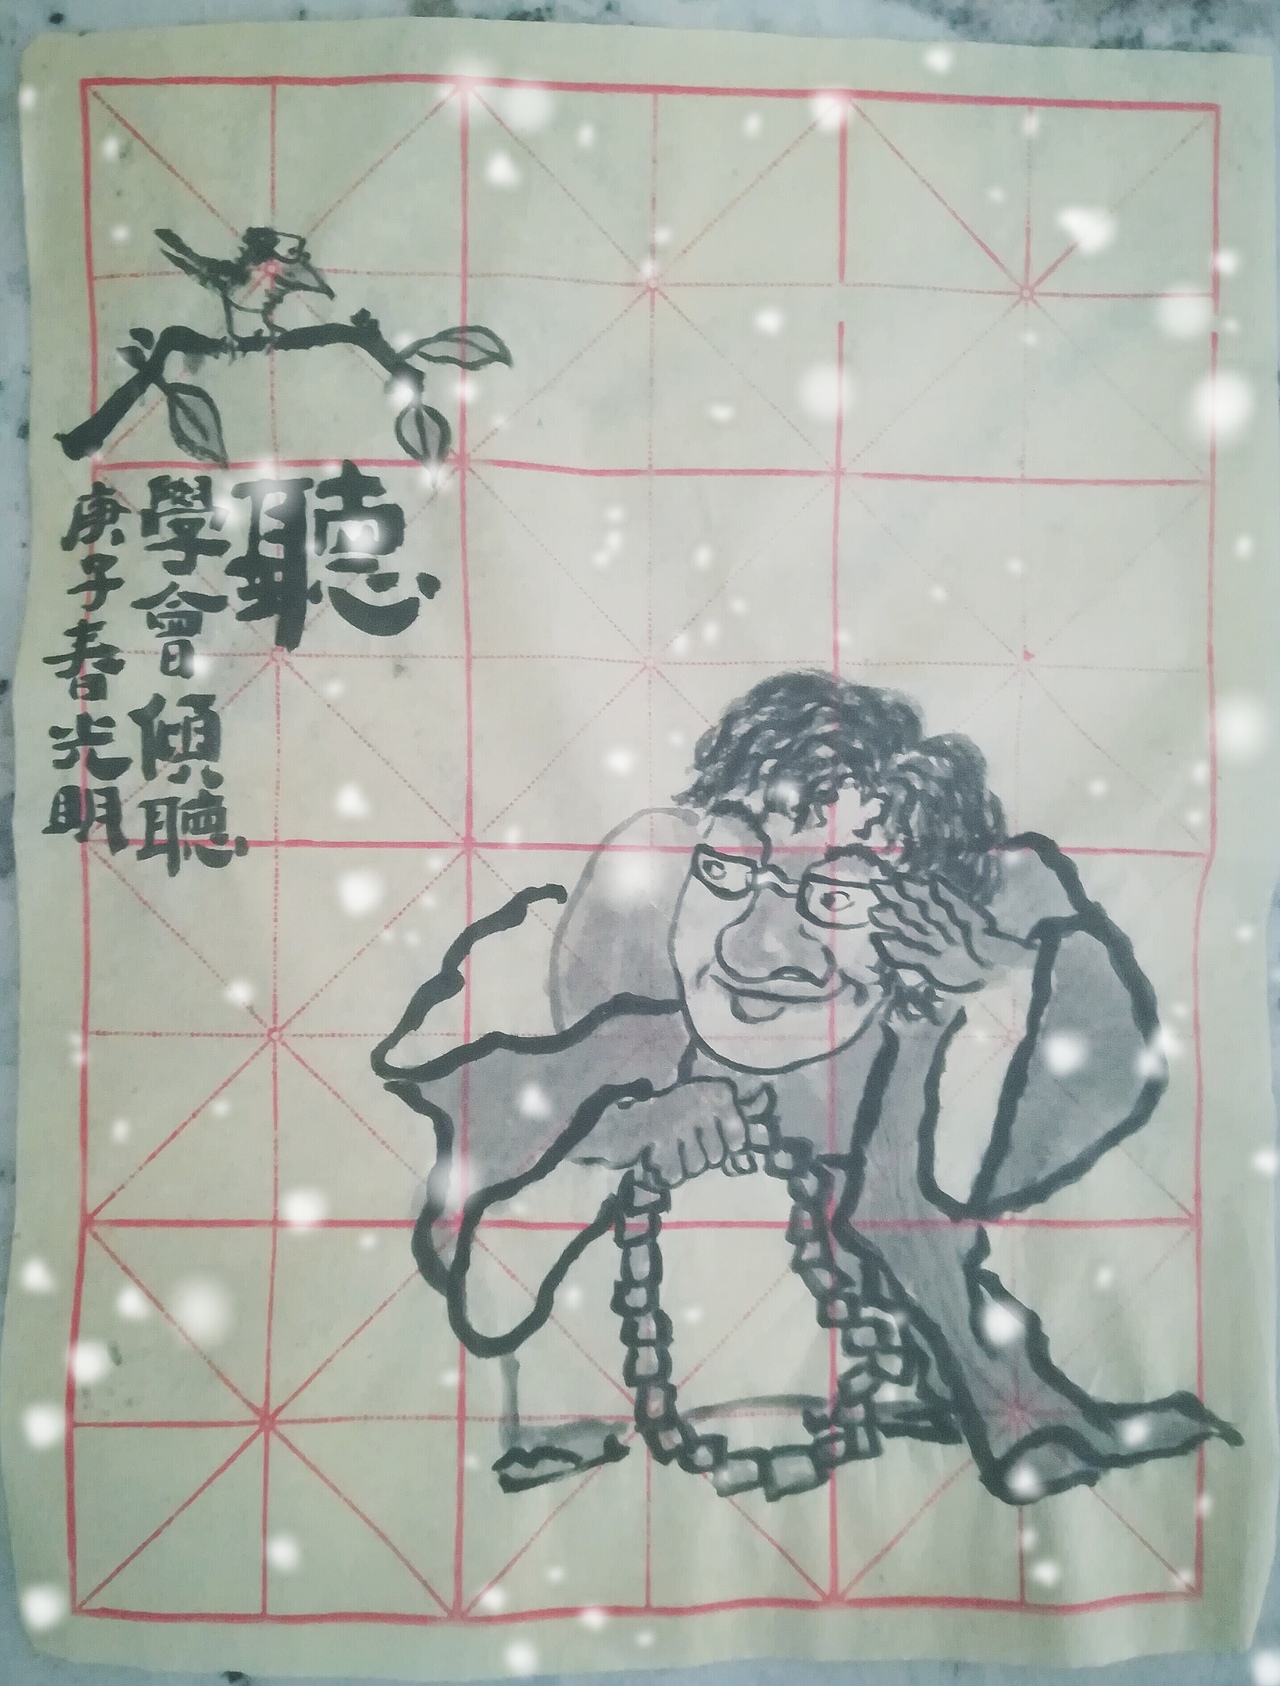 聽
學會傾聽
庚子春光明